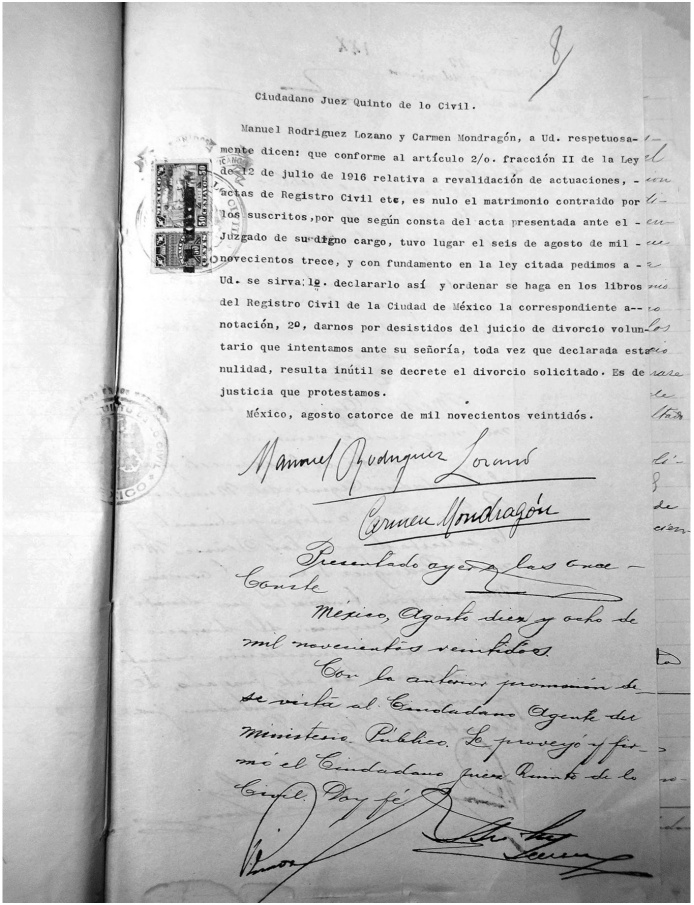 8
Ciudadano Juez Quinto de lo Civil.
Manuel Rodriguez Lozano y Carmen Mondragón, a Ud. respetuosa-
mente dicen: que conforme al artículo 2/o. fracción II de la Ley
de 12 de julio de 1916 relativa a revalidación de actuaciones, -
actas de Registro Civil etc, es nulo el matrimonio contraido por
los suscritos,por que según consta del acta presentada ante el -
Juzgado de su digno cargo, tuvo lugar el seis de agosto de mil -
novecientos trece, y con fundamento en la ley citada pedimos a -
Ud. se sirva:1o. declararlo así y ordenar se haga en los libros
del Registro Civil de la Ciudad de México la correspondiente a--
notación, 2o, darnos por desistidos del juicio de divorcio volun-
tario que intentamos ante su señoría, toda vez que declarada esta
nulidad, resulta inútil se decrete el divorcio solicitado. Es de
justicia que protestamos.
México, agosto catorce de mil novecientos veintidós.
Manuel Rodriguez Lozano
Carmen Mondragón
Presentado ayer a las once -
Conste
México, Agosto diez y ocho de
mil novecientos veintidos.
Con la anterior promoción de-
se vista al Ciudadano Agente del
Ministerio Público. Lo proveyó y fir-
mó el Ciudadano juez Quinto de lo
Civil. Doy fé